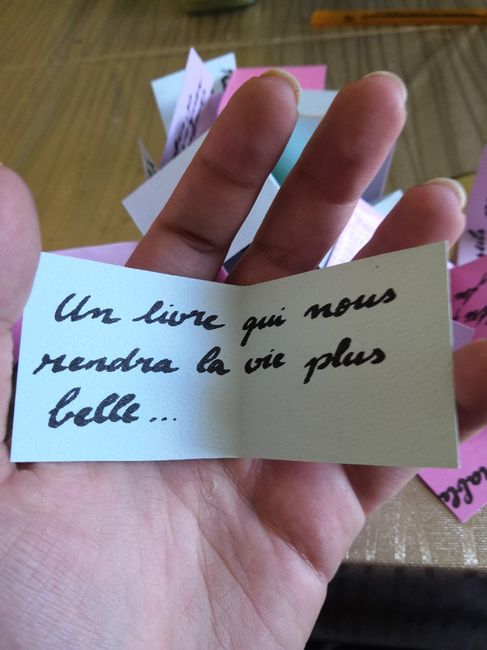 Un livre qui nous
rendra la vie plus
belle...